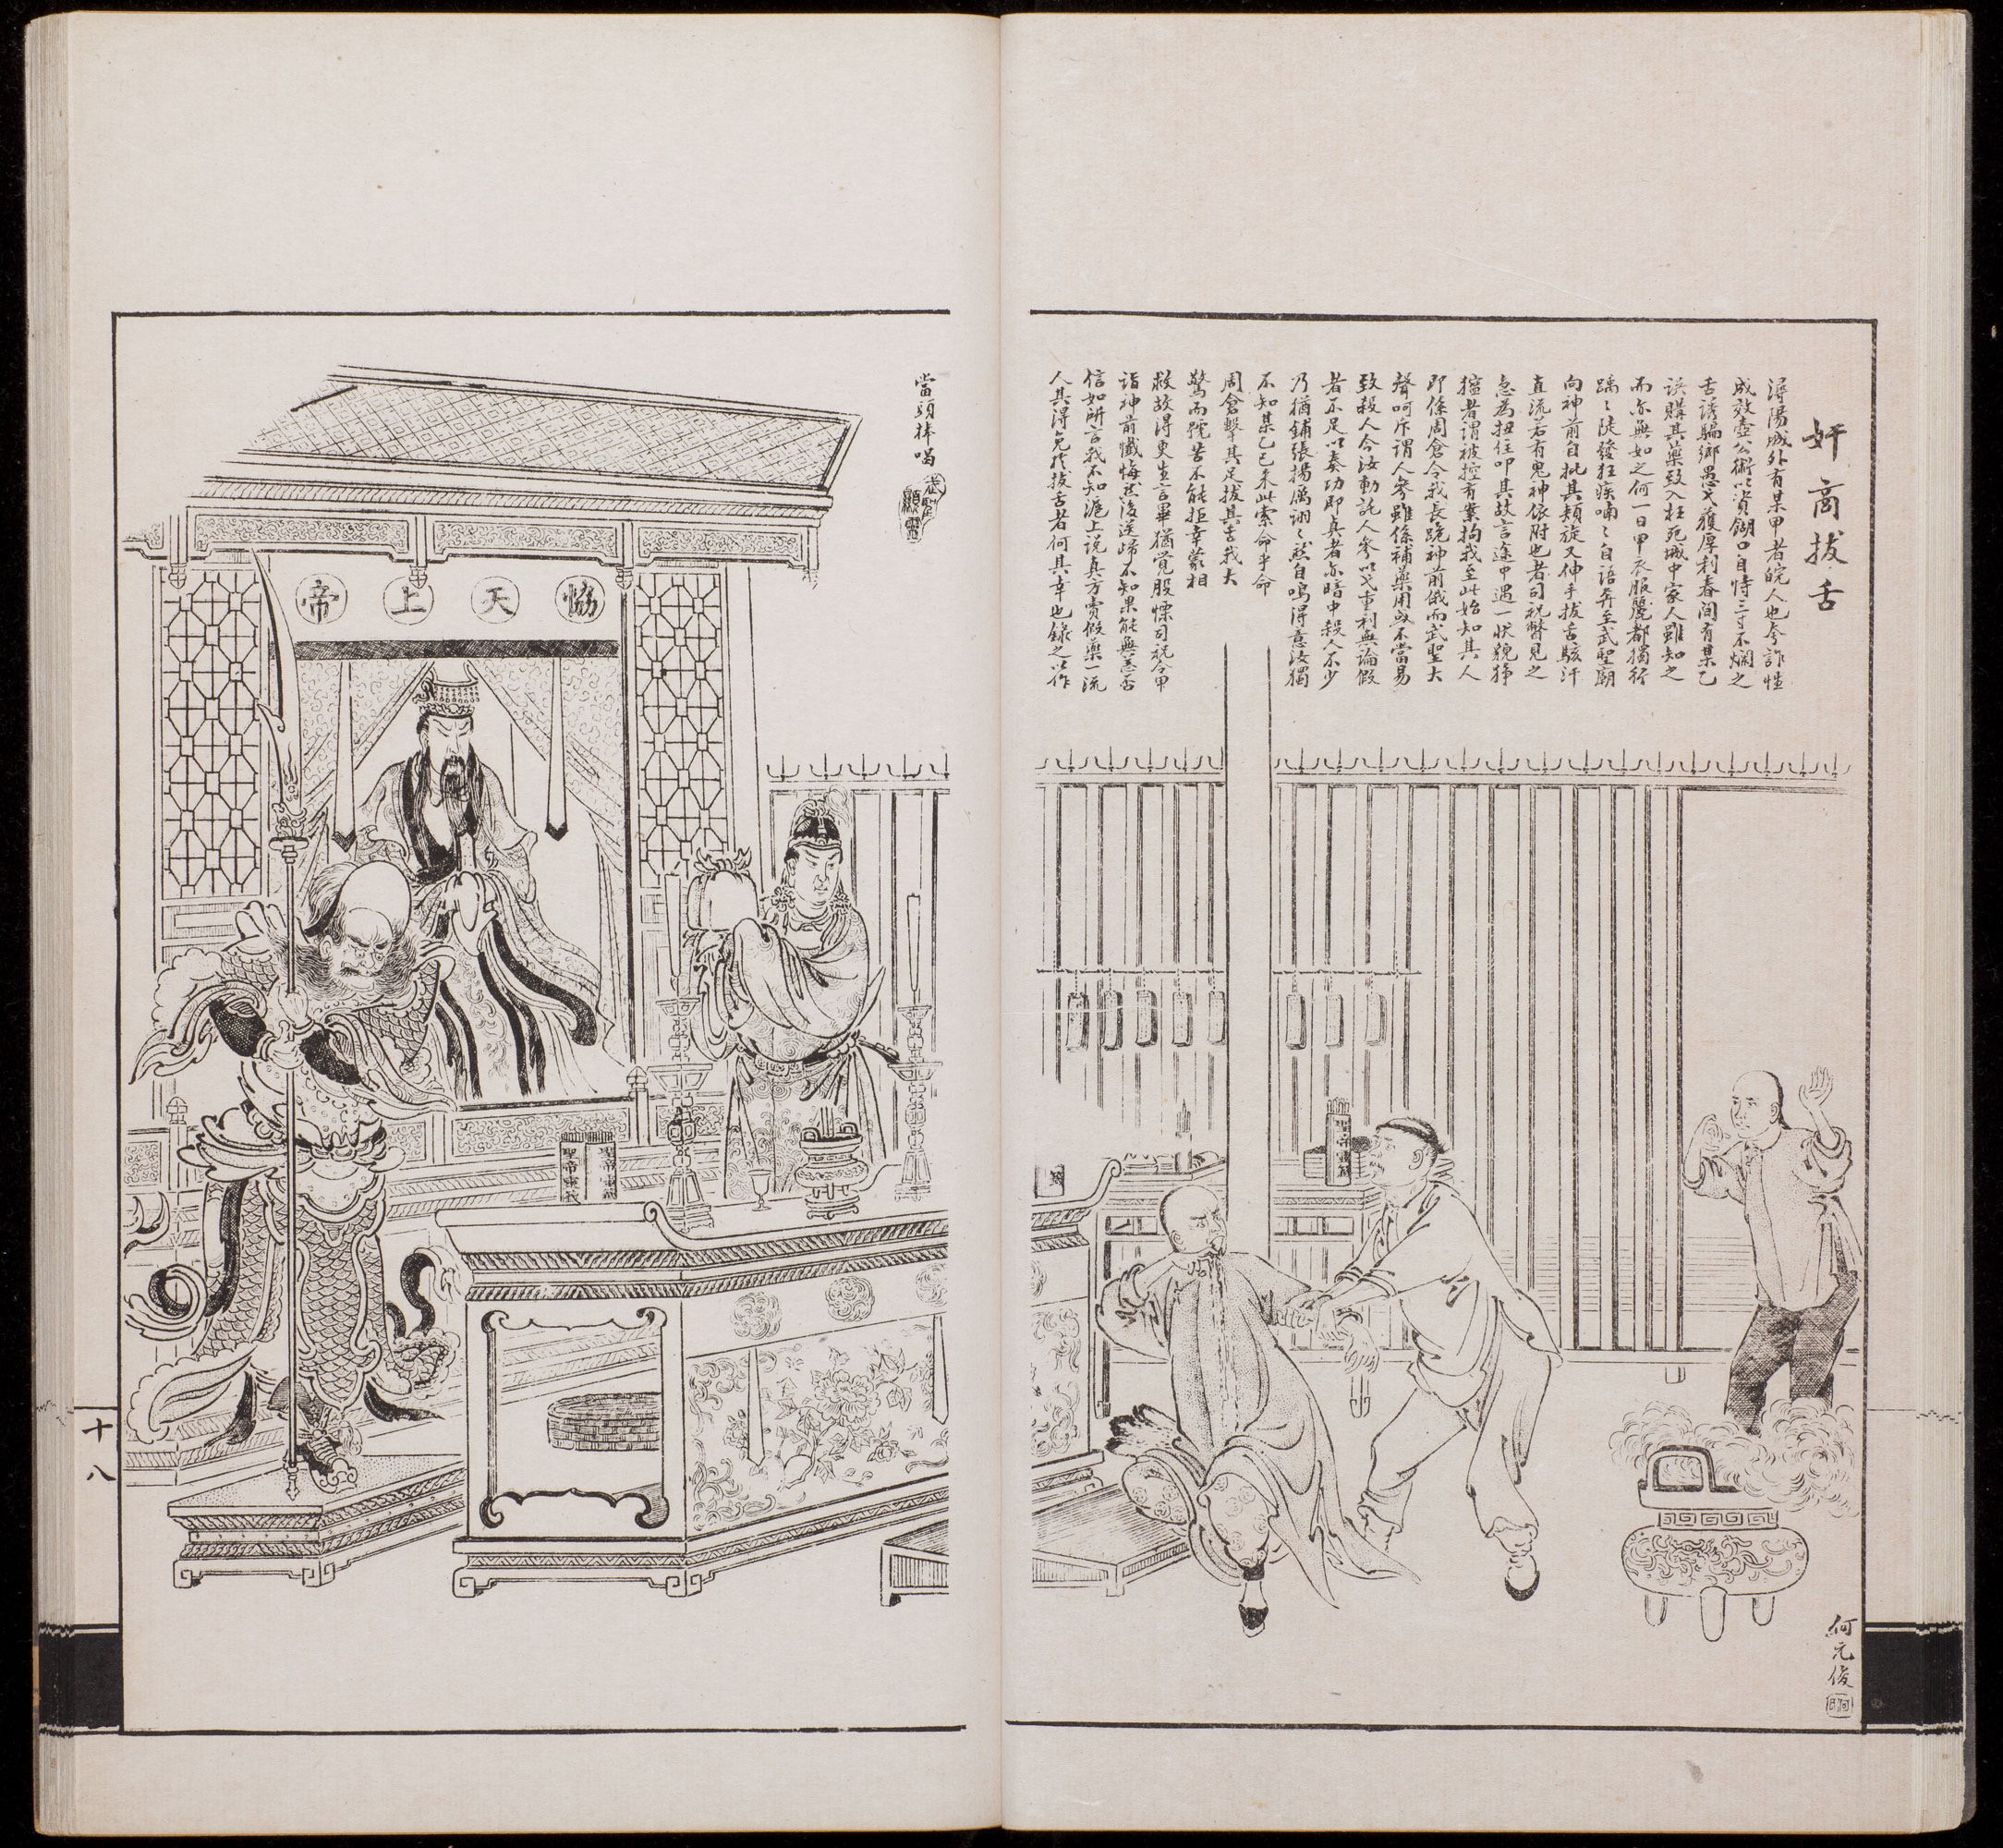 奸商拔舌
潯陽城外有某甲者皖人也夸詐性
成效壺公術以資餬口自恃三寸不爛之
舌誘騙鄉愚弋獲厚利春間有某乙
誤購其藥致入枉死城中家人雖知之
而亦無如之何一日甲衣服麗都獨行
踽踽陡發狂疾喃喃自語奔至武聖廟
向神前自批其頰旋又伸手拔舌駭汗
直流若有鬼神依附也者司祝瞥見之
急為扭住叩其故言途中遇一狀貌猙
獰者謂被控有案拘我至此始知其人
即係周倉令我長跪神前俄而武聖大
聲呵斥謂人參雖係補藥用或不當易
致殺人今汝動託人參以弋重利無論假
者不足以奏功即真者亦暗中殺人不少
乃猶鋪張揚厲詡詡然自鳴得意汝獨
不知某乙已來此索命乎命
周倉擊其足拔其舌我大
驚而號苦不能拒幸蒙相
救故得更生言畢猶覺股慄司祝令甲
詣神前懺悔然後送歸不知果能無恙否
信如所言我不知滬上說真方賣假藥一流
人其得免於拔舌者何其幸也錄之以作
當頭棒喝
武聖
顯靈
協天上帝
何元俊
十八